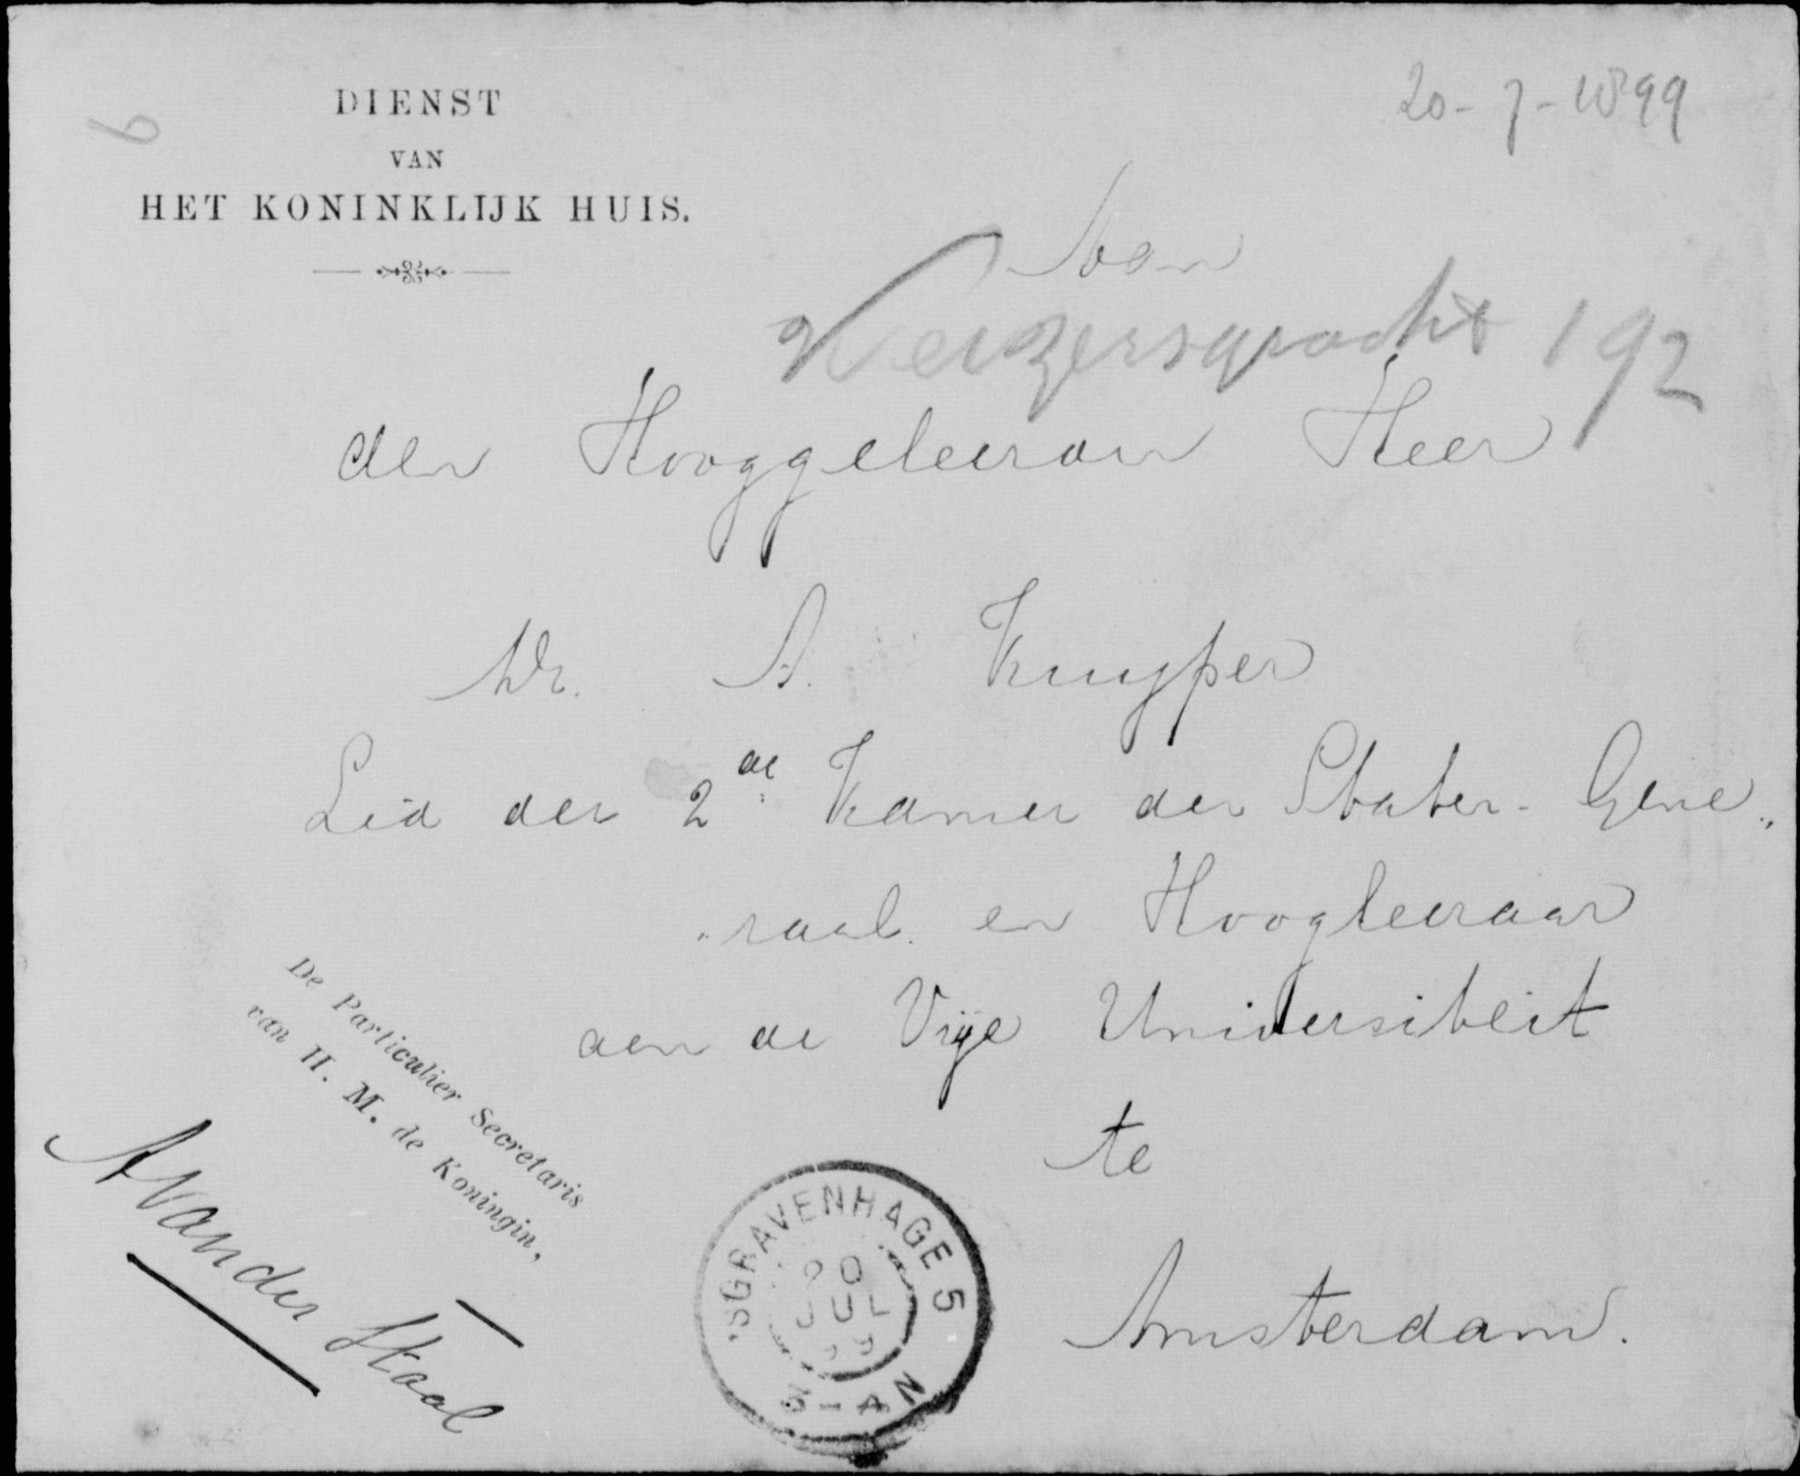 DIENST
VAN
HET KONINKLIJK HUIS.
6
20-7-1899
Aan
Keizersgracht 192
den Hooggeleeraar Heer
Dr. A. Kuyper
Lid der 2de Kamer der Staten-Gene„
„raal en Hoogleeraar
aan de Vrije Universiteit
te
Amsterdam.
De Particulier Secretaris
van H. M. de Koningin,
A van der Staal
'SGRAVENHAGE 5
20
JUL
99
3-4N